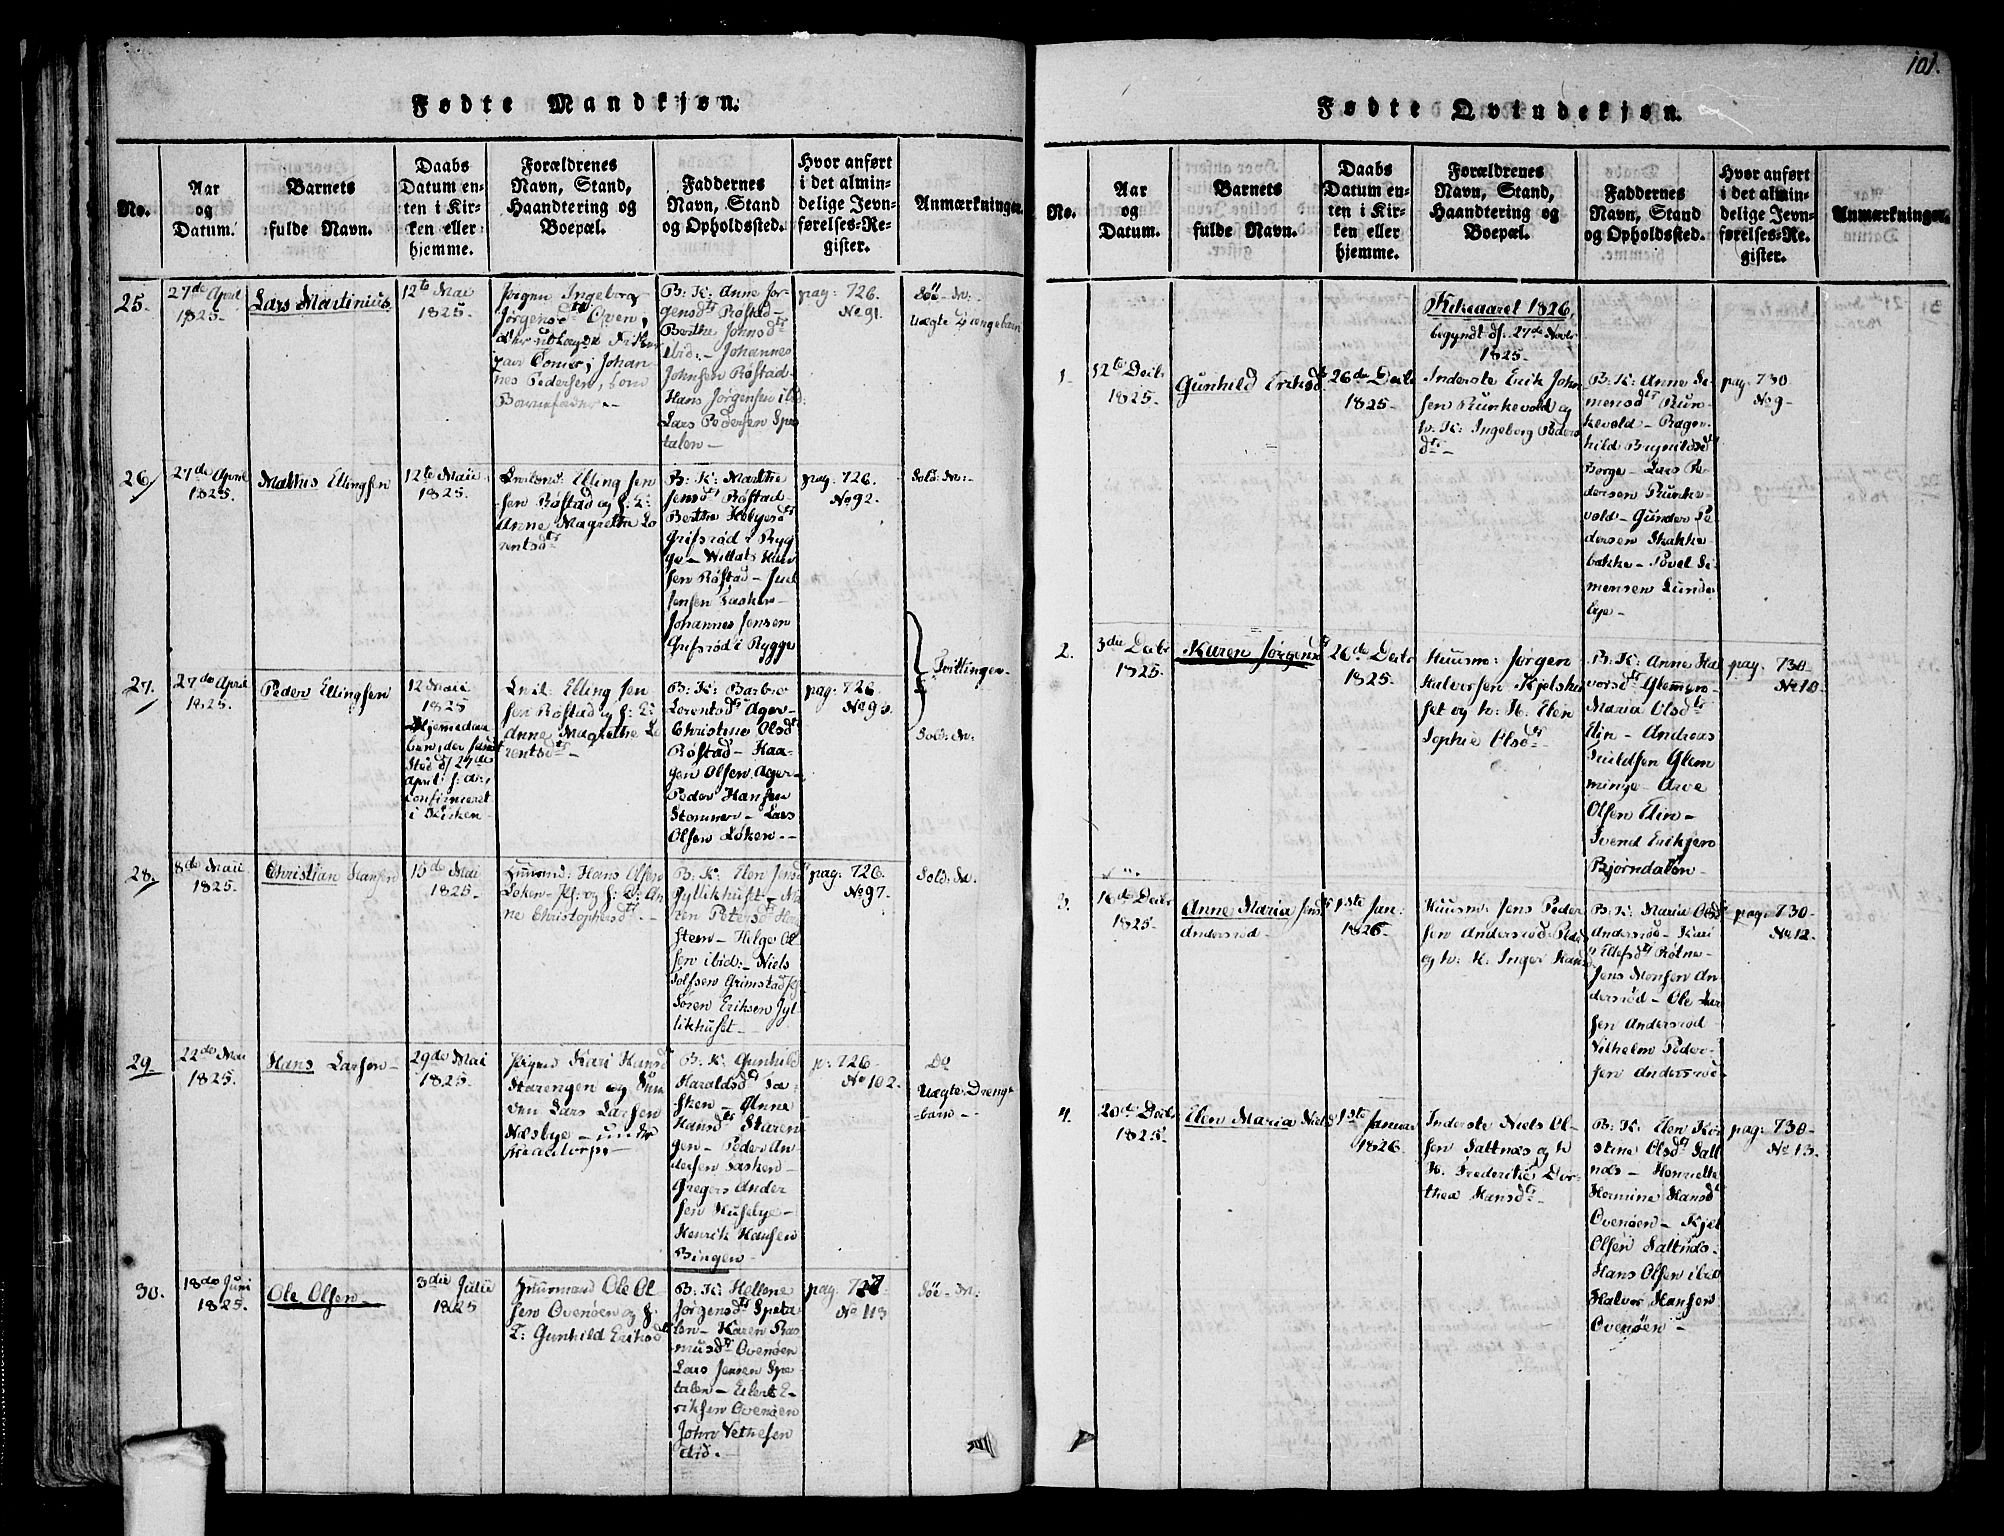 101.
Fødte Mandkjøn.
No.
Aar
og
Datum.
Barnets
fulde Navn.
Daabs
Datum en-
ten i Kir-
ken eller
hjemme.
Forældrenes
Navn, Stand,
Haandtering og
Boepæl.
Faddernes
Navn, Stand
og Opholdssted.
Hvor anført
i det almin-
delige Jevn-
førelses-Re-
gister.
Anmærkninger.
25.
27de April
1825.
Lars Martinius
12te Mai
1825.
Pigen Ingeborg
Jørgensdtr Oven,
Johan-
nes Pedersen, som
Barnefader.-
B: K: Anne Jør-
gensdtr Røstad-
Berthe Johnsdtr
ibid:- Johannes
Johnsen Røstad-
Hans Jørgensen ibid:
Lars Pedersen Spe-
talen-
pag: 726.
No 91.
Søe-Nr:
Uægte Drengebarn
26.
27de April
1825.
Mathis Ellingsen
12te Maii
1825.
Elling Jen-
sen Røstad og h: K:
Anne Magrethe Lo-
rentsdtr
B: K: Marthe
Jensdtr Røstad-
Berthe Helgesdtr
Grifsrød i Ryg-
ge- Willats Han-
sen Røstad- Juel
Jensen Sasker-
Johannes Jensen
Grifsrød i Rygge
pag: 726.
No 92.
Sold: Nr:
Tvillinger
27.
27de April
1825.
Peder Ellingsen
12 Maii
1825
Hjemmedaa-
ben, der fandt
Sted d: 27de
April: h: a:,
confirmeret
i Kirken
Elling Jen-
sen Røstad og h: K:
Anne Magrethe Lo-
rentsdtr-
B: K: Barbro
Lorentsdtr Ager-
Christine Olsdtr
Røstad- Haa-
gen Olsen Ager-
Peder Hansen
Stommen- Lars
Olsen Løken--
pag: 726.
No 93.
Sold: Nr:
28.
8de Maii
1825.
Christian Hansen
15de Mai
1825.
Hans Olsen
Løken
og h: K: An-
ne Christophersdtr-
B: K: Elen Jensdtr
Gyllikhuset- Ma-
ren Petersdtr Hel-
gesteen- Helge Ol-
sen ibid:- Niels
Rolfsen Grimstad
Søren Eriksen Jyl-
likhuset-
pag: 726.
No 97.
Sold: Nr.
29
22de Mai
1825.
Hans Larsen
29de Mai
1825.
Pigen Kari Hansd
Starengen og
Lars Larsen
Næsbye- under
B: K: Gunhild
Haraldsdtr Sa-
sken- Anne
Hansdtr Staren-
gen- Peder An-
dersen Sasken-
Gregers Ander-
sen Husebye-
Henrik Hansen
Bingen-
p: 726-
No 102.
Do
Uægte Drenge-
barn-
30.
18de Juni
1825.
Ole Olsen
3die Julii
1825
Gaarmand Ole Ol-
sen Ovenøen og h:
K: Gunhild Eriksdtr
B: K: Hellene
Jørgensdtr Speta-
len- Karen Ras-
musdtr Ovenøen
Lars Jensen Spe-
talen- Eilert E-
riksen Ovenøen
John Vethesen
ibid.-
pag: 727
No 113
Søe-Nr:
Fødte Qvindekjøn.
No.
Aar
og
Datum.
Barnets
fulde Navn.
Daabs
Datum en-
ten i Kir-
ken eller
hjemme.
Forældrenes
Navn, Stand,
Haandtering og
Boepæl.
Faddernes
Navn, Stand
og Opholdssted.
Hvor anført
i det almin-
delige Jevn-
førelses-Re-
gister.
Anmærkninger.
Kirkeaaret 1826,
begyndt d: 27de Novbr
1825.-
1.
12te Decbr
1825.-
Gunhild Eriksdtr
26de Decbr
1825.-
Inderste Erik John-
sen Runkevold og
h: K: Ingeborg Peders-
dtr-
B: K: Anne Si-
mensdtr Run-
kevold- Ragn-
hild Brynildsdtr
Borge- Lars Pe-
dersen Runke-
vold- Gunder Pe-
dersen Skakke-
bakke- Povel Si-
mensen Lunde-
bye-
pag: 730
No 9-
2.
3die Decbr
1825.
Karen Jørgensdtr
26de Decbr
1825.
Huusm: Jørgen
Halvorsen Kjølshu-
set og h: K: Elen
Sophie Olsdtr-
B: K: Anne Hal-
vorsdtr Glemme-
Maria Olsdtr
Elin- Andreas
Glem-
minge- Arve
Olsen Elin-
Svend Eriksen
Bjørndalen-
pag: 730-
No 10.
3.
16de Decbr
1825.
Anne Maria Jensdtr
Andersrød-
1ste Jan:
1826-
Huusm: Jens Peder-
sen Andersrød
og h: K: Inger Hansd
B: K: Maria Olsdtr
Andersrød- Kari
Ellefsdtr Røtne-
Jens Monsen An-
dersrød- Ole Lar-
sen Andersrød
Vilhelm Peder-
sen Andersrød
pag: 730-
No 12.
4.
20de Decbr
1825.
Elen Maria Nielsd
1ste
Januar
1826.
Inderste Niels Ol-
sen Saltnæs og h:
K: Frederikke Dor-
thea Hansdtr-
B: K: Elen Kir-
stine Olsdtr Salt-
næs- Henriette
Hermine Hansdtr
Ovenøen- Kjel
Olsen Saltnæs-
Hans Olsen ibid
Halvor Hansen
Ovenøen-
pag: 730-
No 13.